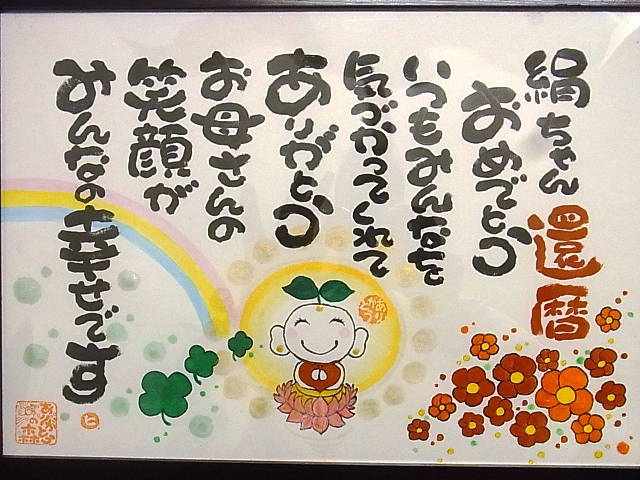 絹ちゃん還暦
おめでとう
いつもみんなを
気づかってくれて
ありがとう
お母さんの
笑顔が
みんなの幸せです
ありがとう